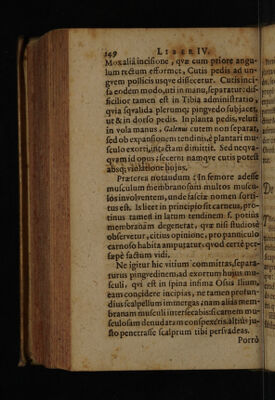 149 LIBER IV.
Moxaliâ incisione, quæ cum priore angu-
lum rectum efformet, Cutis pedis ad un-
gvem pollicis usque dissecetur. Cutis inci-
sa eodem modo, uti in manu, separatur: dif-
ficilior tamen est in Tibia administratio,
qvia sqvalida plerumq; pingvedo subjacet,
ut & in dorso pedis. In planta pedis, veluti
in vola manus, Galenus cutem non separat,
sed ob expansionem tendinis, è plantari mu-
sculo exorti, intactam dimittit. Sed neqva-
qvam id opus: secerni namqve cutis potest
absq; violatione hujus.
Præterea notandum: In femore adesse
musculum membranosum multos muscu-
los involventem, unde fasciæ nomen sorti-
tus est. Is licet in principio sit carneus, pro-
tinus tamen in latum tendinem s. potius
membranam degenerat, qvæ nisi studiosè
observetur, citius opinione, pro panniculo
carnoso habita amputatur: qvod certè per-
sæpè factum vidi.
Ne igitur hic vitium committas, separa-
turus pingvedinem, ad exortum hujus mu-
sculi, qvi est in spina infima Ossis Ilium,
eam concidere incipias, ne tamen profun-
dius scalpellum immergas: nam alias mem-
branam musculi intersecabis: si carnem mu-
sculosam denudatam conspexeris, altius ju-
sto penetrasse scalprum tibi persvadeas.
Porrò